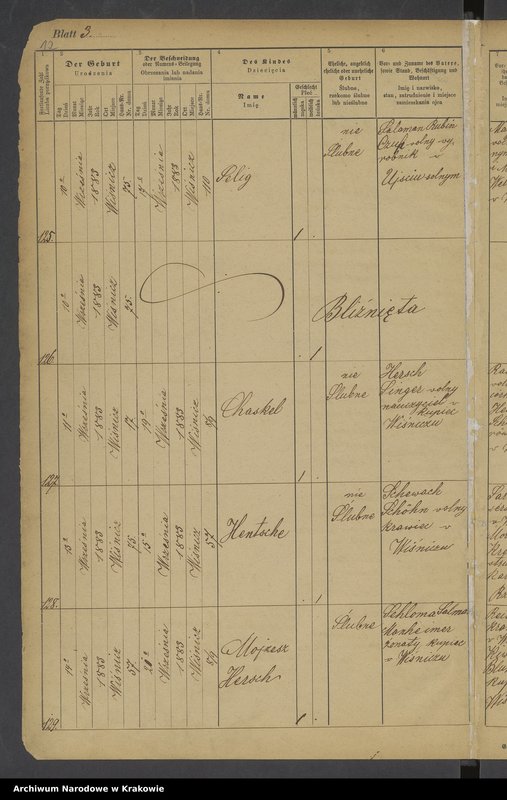 Blatt 3.
2
3
4
5
6
Der Geburt
Urodzenia
Der Beschneidung
oder Namens-Beilegung
Obrzezania lub nadania
imienia
Des Kindes
Dziecięcia
Name
Imię
Geschlecht
Płeć
Eheliche, angeblich
eheliche oder uneheliche
Geburt
Ślubne,
rzekomo ślubne
lub nieślubne
Vor- und Zuname des Vaters,
sowie Stand, Beschäftigung und
Wohnort
Imię i nazwisko,
stan, zatrudnienie i miejsce
zamieszkania ojca
Tag
Dzień
Monat
Miesiąc
Jahr
Rok
Ort
Miejsce
Haus-Nr.
Nr. domu
125.
10
Września
1883
Wiśnicz
75
Września
1883
Wiśnicz
110
Selig
1
nie
Ślubne
Salaman Rubin
wolny wy,
robnik w
Ujściu solnym
126.
10
Września
1883
Wiśnicz
75
1
Bliźnięta
127.
11
Września
1883
Wiśnicz
17
19
Września
1883
Wiśnicz
Chaskel
1
nie
Ślubne
Hersch
Singer wolny
nauczyciel w
kupiec
Wiśniczu
128.
13
Września
1883
Wiśnicz
75
15
Września
1883
Wiśnicz
57
Hentsche
1
nie
Ślubne
Schewach
Schöhn wolny
krawiec w
Wiśniczu
129.
14
Września
1883
Wiśnicz
57
20
Września
1883
Wiśnicz
Mojżesz
Hersch
1
Ślubne
Schloma Salmon
Manheimer
żonaty kupiec
w Wiśniczu
Archiwum Narodowe w Krakowie